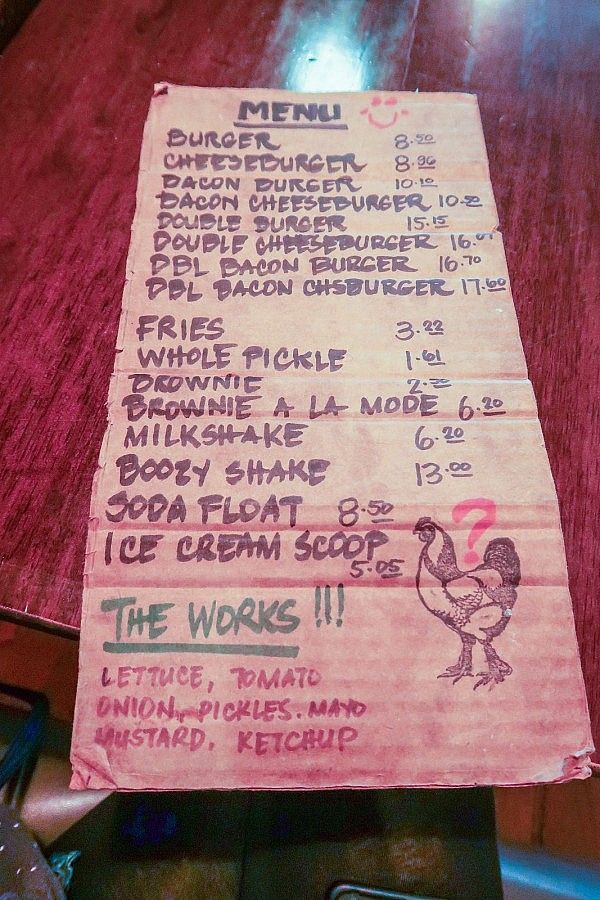 MENU
BURGER 8.50
CHEESEBURGER 8.96
BACON BURGER 10.10
BACON CHEESEBURGER
DOUBLE BURGER 15.15
DOUBLE CHEESEBURGER
DBL BACON BURGER 16.70
DBL BACON CHSBURGER 17.60
FRIES 3.22
WHOLE PICKLE 1.61
BROWNIE
BROWNIE A LA MODE 6.20
MILKSHAKE 6.20
BOOZY SHAKE 13.00
SODA FLOAT 8.50
ICE CREAM SCOOP
5.05
?
THE WORKS !!!
LETTUCE, TOMATO
ONION, PICKLES. MAYO
MUSTARD. KETCHUP